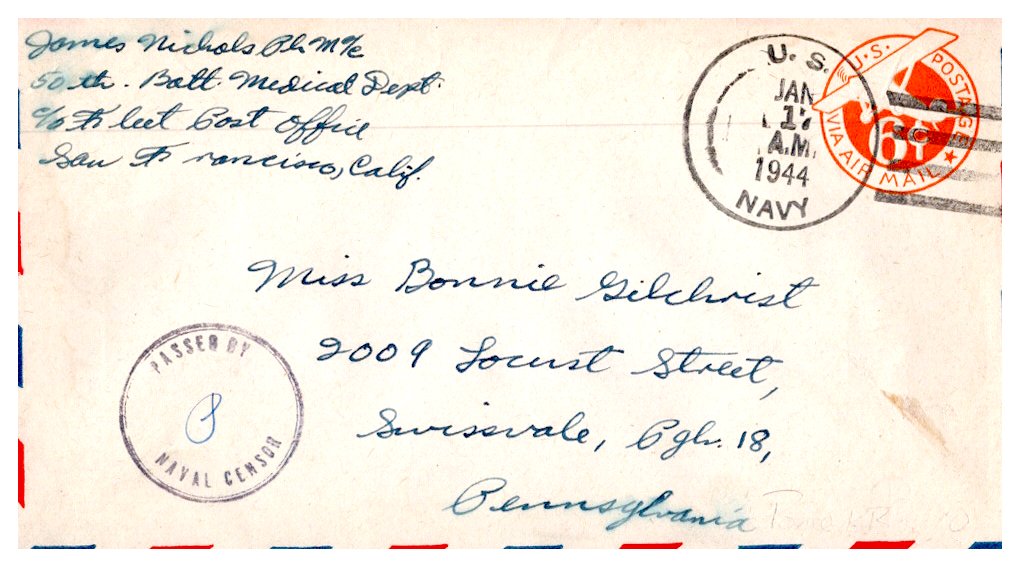 James Nichols Ph M 1/c
50 th. Batt. Medical Dept.
c/o Fleet Post Office
San Francisco, Calif.
U. S.
JAN
17
A.M.
1944
NAVY
U.S. POSTAGE
6¢
VIA AIR MAIL
Miss Bonnie Gilchrist
2009 Locust Street,
Swissvale, Pgh. 18,
Pennsylvania
PASSED BY
NAVAL CENSOR